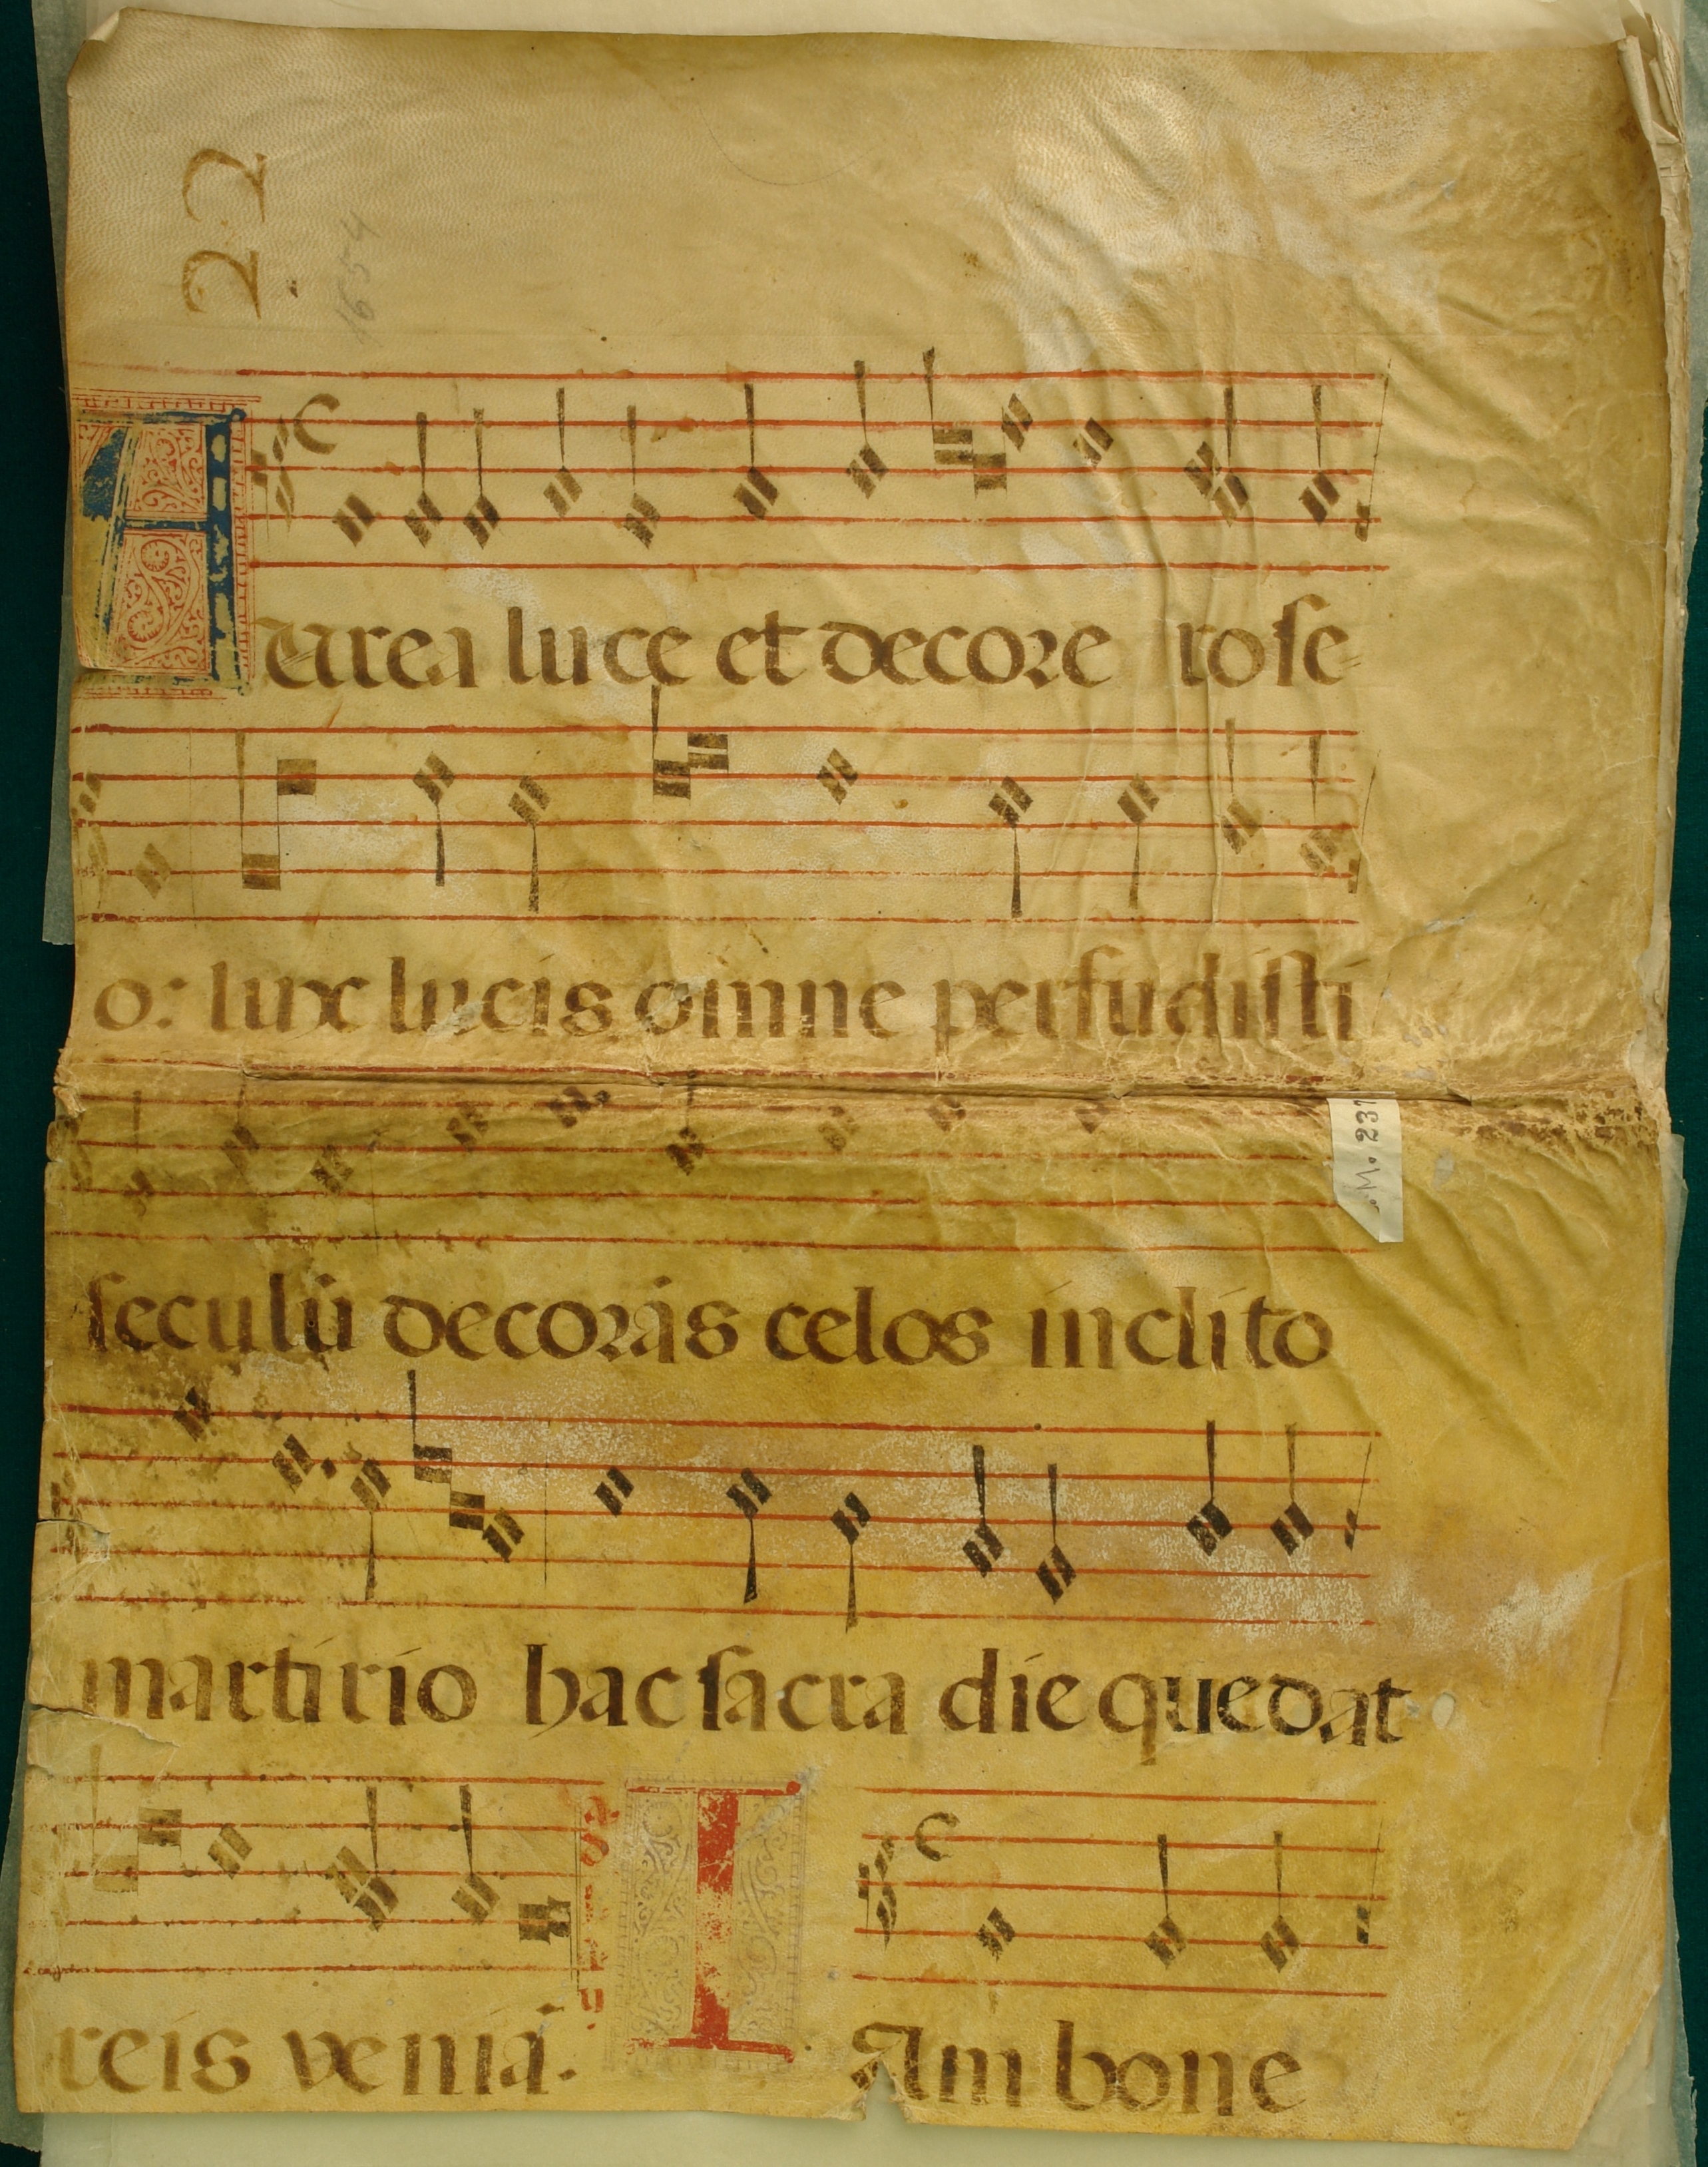 22
1654
Aurea luce et decore rose-
o: lux lucis omne perfudisti
M. 231
seculū decorās celos inclito
martirio hac sacra die que dat
reis veniā.
IAm bone